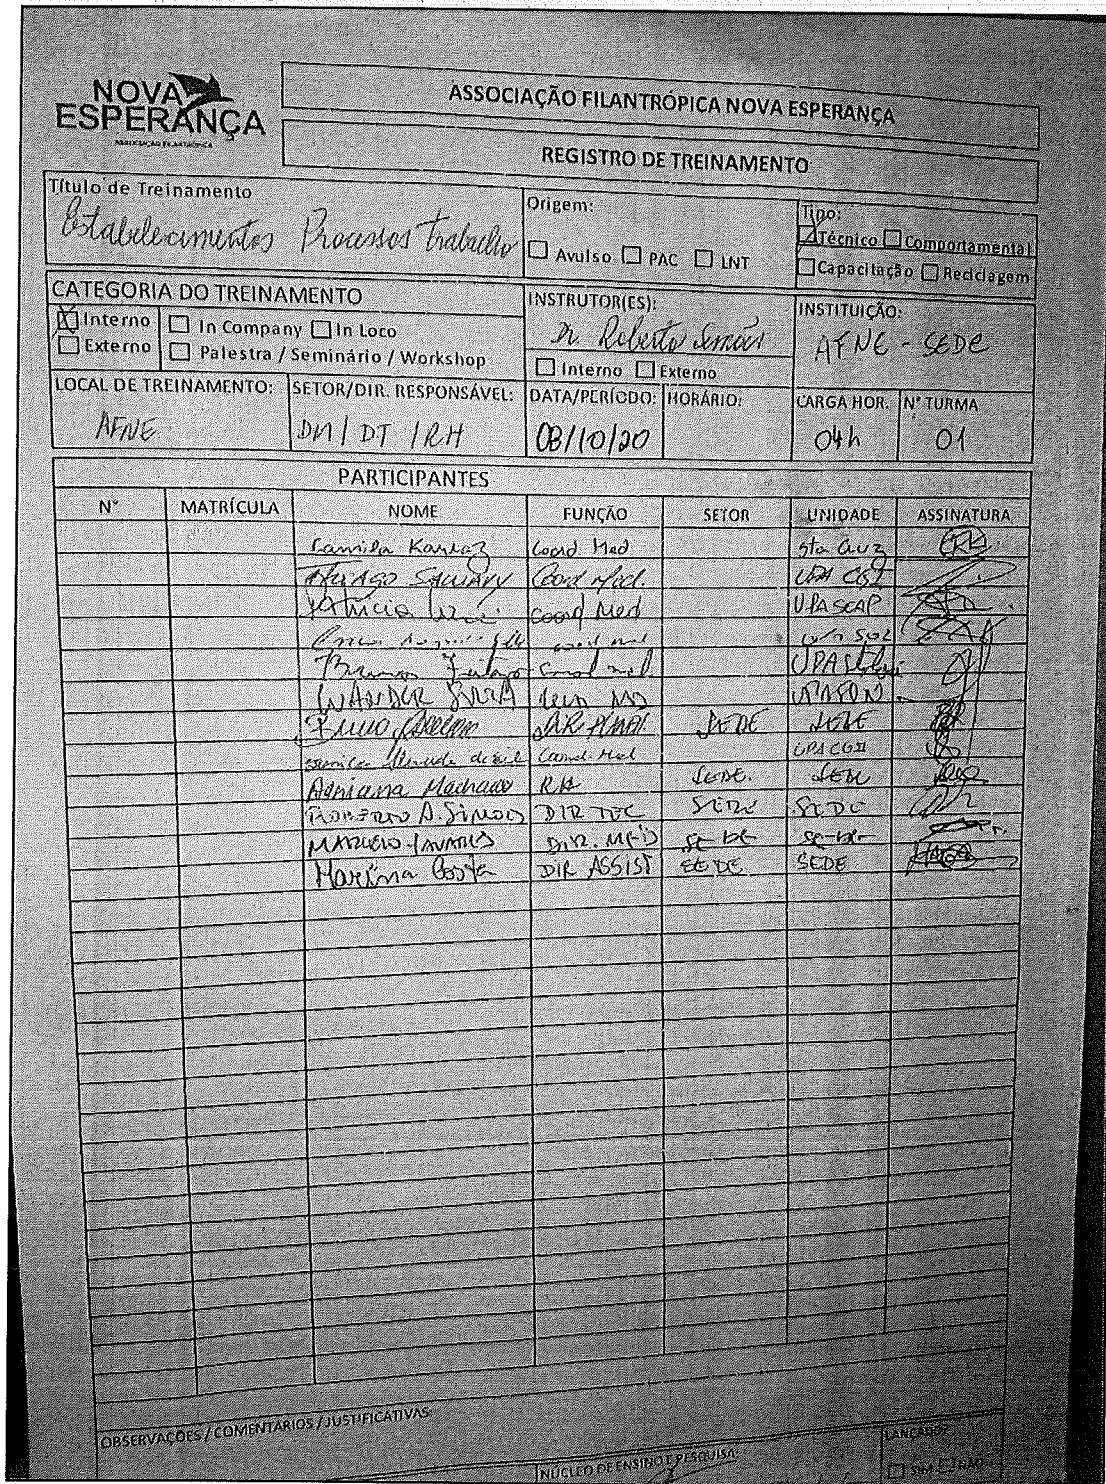 NOVA
ESPERANÇA
ASSOCIAÇÃO FILANTRÓPICA
ASSOCIAÇÃO FILANTRÓPICA NOVA ESPERANÇA
REGISTRO DE TREINAMENTO
Título de Treinamento
Estabelecimentos Processos Trabalho
Origem:
☐ Avulso ☐ PAC ☐ LNT
Tipo:
☑ Técnico ☐ Comportamental
☐ Capacitação ☐ Reciclagem
CATEGORIA DO TREINAMENTO
☒ Interno ☐ In Company ☐ In Loco
☐ Externo ☐ Palestra / Seminário / Workshop
INSTRUTOR(ES):
Dr. Roberto Simões
☐ Interno ☐ Externo
INSTITUIÇÃO:
AFNE - SEDE
LOCAL DE TREINAMENTO:
AFNE
SETOR/DIR. RESPONSÁVEL:
DM / DT / RH
DATA/PERÍODO:
08/10/20
HORÁRIO:
CARGA HOR.
04h
N° TURMA
01
PARTICIPANTES
N° MATRÍCULA NOME FUNÇÃO SETOR UNIDADE ASSINATURA
Camila Coord Med Sta Cruz
Thiago Coord Med. UPA CGI
Patricia Coord Med UPA SCAP
UPA
WANDER
SEDE SEDE
UPA CGII
Adriana Machado RH SEDE. SEDE
ROBERTO A. SIMOES DIR TEC SEDE SEDE
MARCELO TAVARES DIR. MED SEDE SEDE
Marina Costa DIR ASSIST SEDE SEDE
OBSERVAÇÕES / COMENTÁRIOS / JUSTIFICATIVAS:
NÚCLEO DE ENSINO E PESQUISA:
LANÇADO?
☐ SIM ☐ NÃO